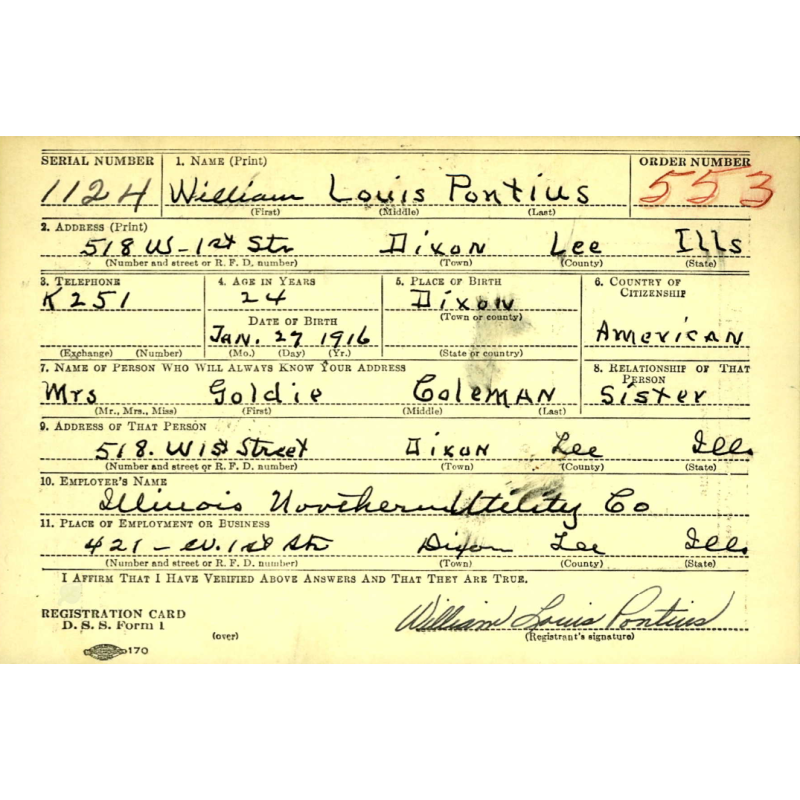 SERIAL NUMBER 1. NAME (Print) ORDER NUMBER
1124 William Louis Pontius 553
(First) (Middle) (Last)
2. ADDRESS (Print)
518 W-1st Str Dixon Lee Ills
(Number and street or R. F. D. number) (Town) (County) (State)
3. TELEPHONE 4. AGE IN YEARS 5. PLACE OF BIRTH 6. COUNTRY OF CITIZENSHIP
K251 24 Dixon
(Town or county)
DATE OF BIRTH
JAN. 27 1916 American
(Exchange) (Number) (Mo.) (Day) (Yr.) (State or country)
7. NAME OF PERSON WHO WILL ALWAYS KNOW YOUR ADDRESS 8. RELATIONSHIP OF THAT PERSON
Mrs Goldie Coleman Sister
(Mr., Mrs., Miss) (First) (Middle) (Last)
9. ADDRESS OF THAT PERSON
518. W 1st Street Dixon Lee Ill.
(Number and street or R. F. D. number) (Town) (County) (State)
10. EMPLOYER'S NAME
Illinois Northern Utility Co
11. PLACE OF EMPLOYMENT OR BUSINESS
421 - W. 1st Str Dixon Lee Ill.
(Number and street or R. F. D. number) (Town) (County) (State)
I AFFIRM THAT I HAVE VERIFIED ABOVE ANSWERS AND THAT THEY ARE TRUE.
REGISTRATION CARD
D. S. S. Form 1 William Louis Pontius
(over) (Registrant's signature)
170